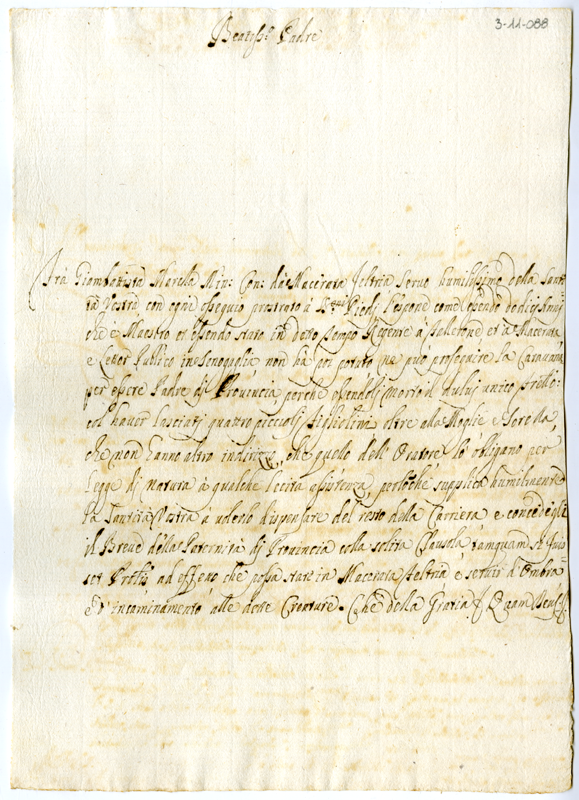 3-11-088
Beatiss.º Padre
Frà Giambattista Marella Min: Con: da Macerata Feltria servo humilissimo della Santi
tà Vestra con ogni ossequio prostrato a Piedi, l'espone come essendo
che è Maestro et essendo stato in detto tempo Regente a et a Macerata
e Lettor Publico in Senogaglia, non ha poi potuto ne può proseguire la Caravana
per essere Padre di Provincia, perche essendoli morto il di lui unico fratello:
col haver lasciati quattro piccioli figliolini oltre alla Moglie e Sorella,
che non hanno altro indirizzo, che quello dell' Oratore lo obligano per
legge di natura à qualche lecita assistenza, perloche supplica humilmente
la Santità Vostra à volerlo dispensare del resto della Carriera e concedergli
il Breve della Paternità di Provincia colla solita Clausola tamquam si fuis=
set ad effetto che possa star in Macerata Feltria e servir d'Ombra
e d'incaminamento alle dette Creature. Che della Gratia &. Quam Deus &.